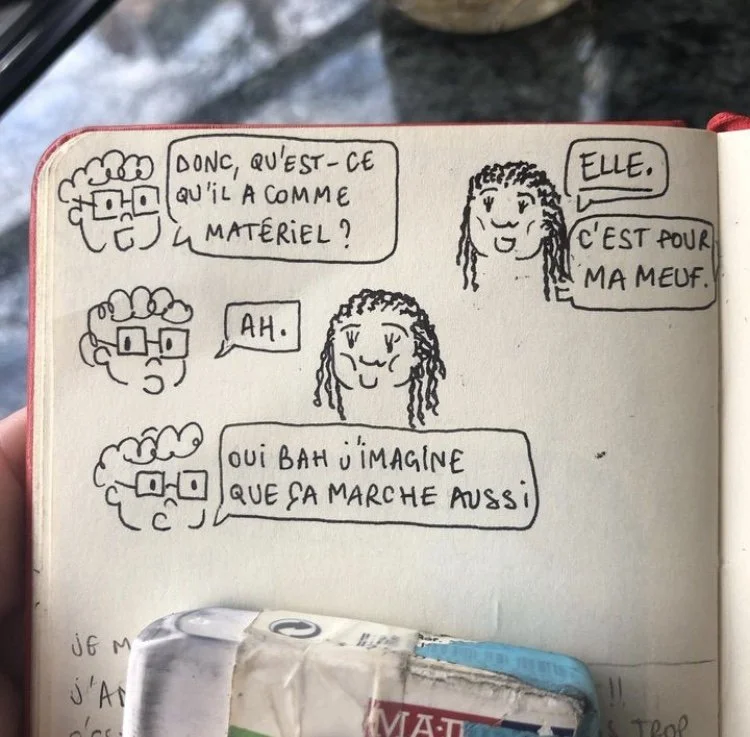 DONC, QU'EST-CE
QU'IL A COMME
MATÉRIEL ?
ELLE.
C'EST POUR
MA MEUF.
AH.
OUI BAH J'IMAGINE
QUE ÇA MARCHE AUSSI
JE
!!
TROP